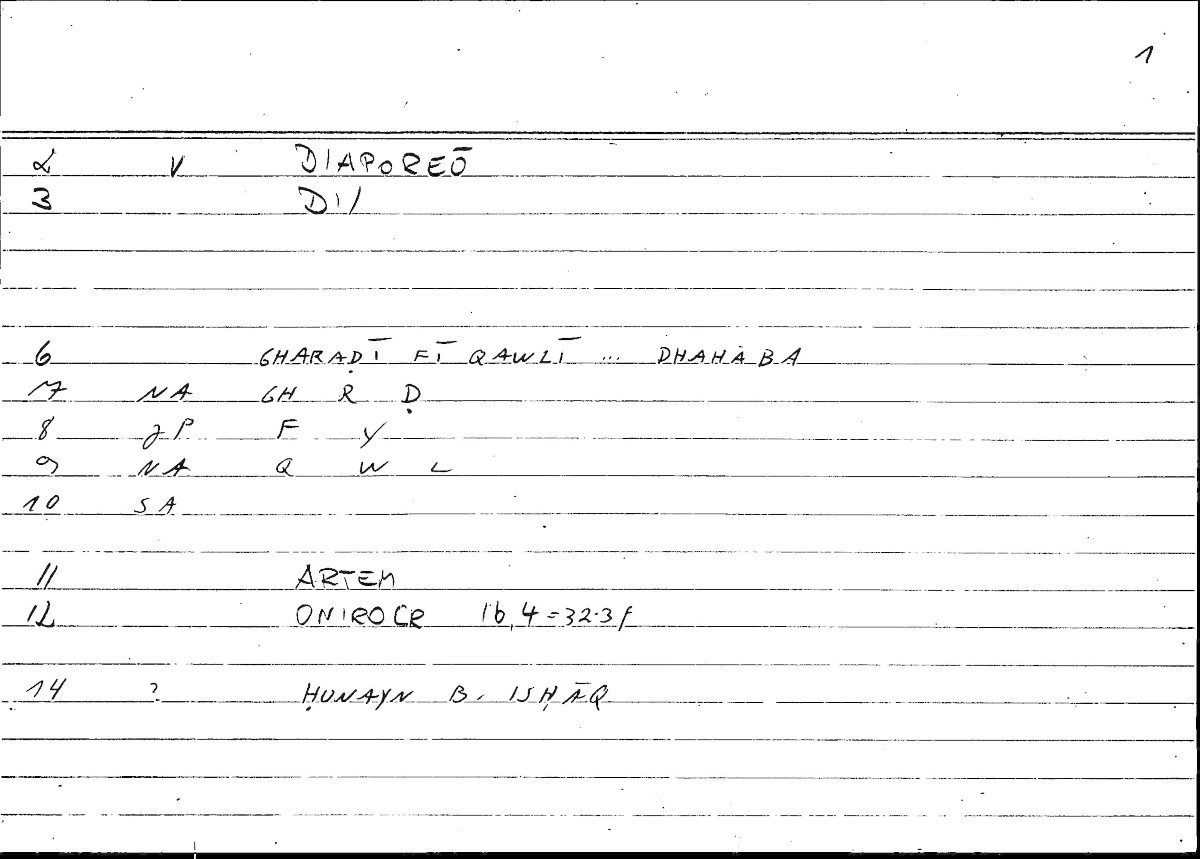 1
2 V DIAPOREŌ
3 DI/
6 GHARAḌĪ FĪ QAWLĪ ... DHAHABA
7 NA GH R Ḍ
8 JP F Y
9 NA Q W L
10 SA
11 ARTEM
12 ONIROCR 16,4=32.3f
14 ? ḤUNAYN B. ISḤĀQ